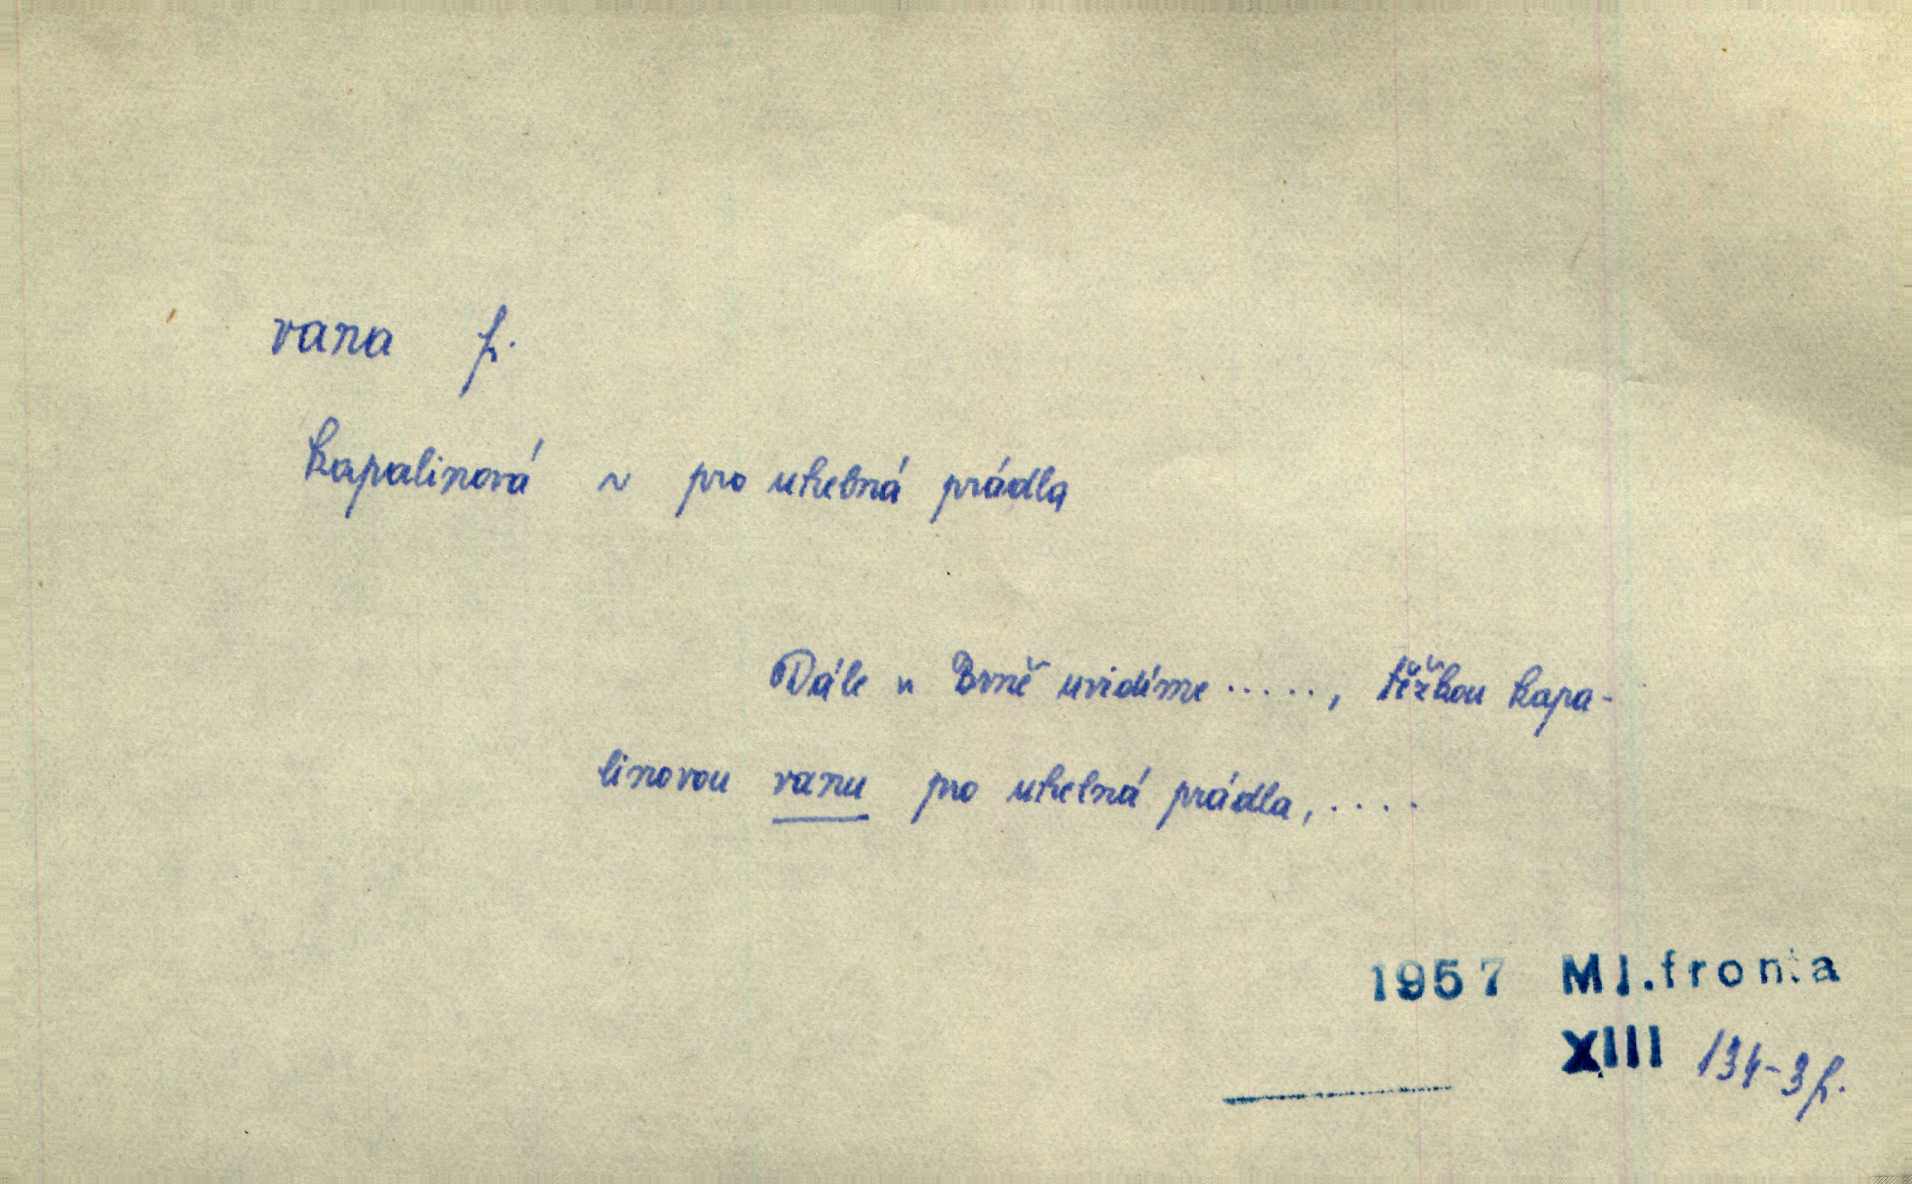 vana f.
kapalinová ~ pro uhelná prádla
Dále v Brně uvidíme ....., těžkou kapa-
linovou vanu pro uhelná prádla, ....
1957 Ml.fronta
XIII 134-3f.